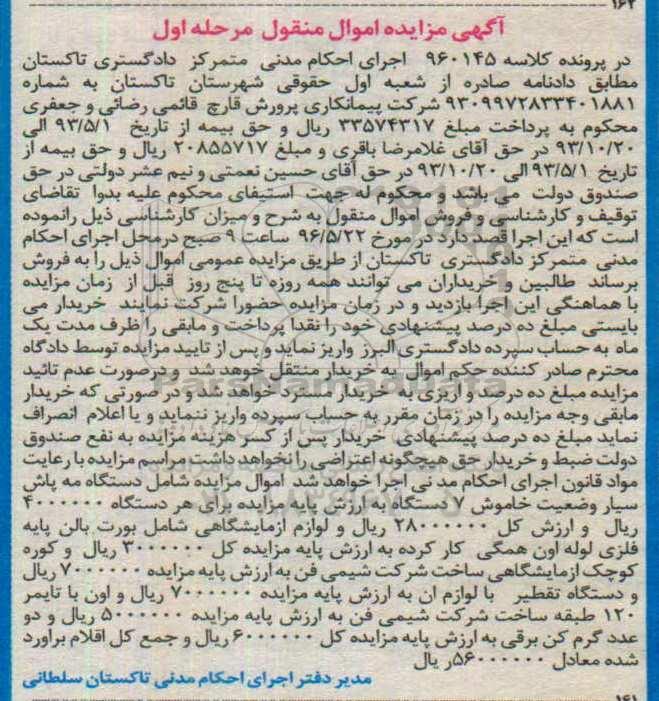 ۱۶۲
آگهی مزایده اموال منقول مرحله اول
در پرونده کلاسه ۹۶۰۱۴۵ اجرای احکام مدنی متمرکز دادگستری تاکستان
مطابق دادنامه صادره از شعبه اول حقوقی شهرستان تاکستان به شماره
۹۳۰۹۹۷۲۸۳۳۴۰۱۸۸۱ شرکت پیمانکاری پرورش قارچ قائمی رضائی و جعفری
محکوم به پرداخت مبلغ ۳۳۵۷۴۳۱۷ ریال و حق بیمه از تاریخ ۹۳/۵/۱ الی
۹۳/۱۰/۲۰ در حق آقای غلامرضا باقری و مبلغ ۲۰۸۵۵۷۱۷ ریال و حق بیمه از
تاریخ ۹۳/۵/۱ الی ۹۳/۱۰/۲۰ در حق آقای حسین نعمتی و نیم عشر دولتی در حق
صندوق دولت می باشد و محکوم له جهت استیفای محکوم علیه بدوا تقاضای
توقیف و کارشناسی و فروش اموال منقول به شرح و میزان کارشناسی ذیل رانموده
است که این اجرا قصد دارد در مورخ ۹۶/۵/۲۲ ساعت ۹ صبح درمحل اجرای احکام
مدنی متمرکز دادگستری تاکستان از طریق مزایده عمومی اموال ذیل را به فروش
برساند طالبین و خریداران می توانند همه روزه تا پنج روز قبل از زمان مزایده
با هماهنگی این اجرا بازدید و در زمان مزایده حضورا شرکت نمایند خریدار می
بایستی مبلغ ده درصد پیشنهادی خود را نقدا پرداخت و مابقی را ظرف مدت یک
ماه به حساب سپرده دادگستری البرز واریز نماید و پس از تایید مزایده توسط دادگاه
محترم صادر کننده حکم اموال به خریدار منتقل خوهد شد و درصورت عدم تائید
مزایده مبلغ ده درصد و اریزی به خریدار مسترد خواهد شد و در صورتی که خریدار
مابقی وجه مزایده را در زمان مقرر به حساب سپرده واریز ننماید و یا اعلام انصراف
نماید مبلغ ده درصد پیشنهادی خریدار پس از کسر هزینه مزایده به نفع صندوق
دولت ضبط و خریدار حق هیچگونه اعتراضی را نخواهد داشت مراسم مزایده با رعایت
مواد قانون اجرای احکام مد نی اجرا خواهد شد اموال مزایده شامل دستگاه مه پاش
سیار وضعیت خاموش ۷ دستگاه به ارزش پایه مزایده برای هر دستگاه ۴۰۰۰۰۰۰
ریال و ارزش کل ۲۸۰۰۰۰۰۰ ریال و لوازم ازمایشگاهی شامل بورت بالن پایه
فلزی لوله اون همگی کار کرده به ارزش پایه مزایده کل ۳۰۰۰۰۰۰ ریال و کوره
کوچک ازمایشگاهی ساخت شرکت شیمی فن به ارزش پایه مزایده ۷۰۰۰۰۰۰ ریال
و دستگاه تقطیر با لوازم ان به ارزش پایه مزایده ۷۰۰۰۰۰۰ ریال و اون با تایمر
۱۲۰ طبقه ساخت شرکت شیمی فن به ارزش پایه مزایده ۵۰۰۰۰۰۰ ریال و دو
عدد گرم کن برقی به ارزش پایه مزایده کل ۶۰۰۰۰۰۰ ریال و جمع کل اقلام براورد
شده معادل ۵۶۰۰۰۰۰۰ر یال
مدیر دفتر اجرای احکام مدنی تاکستان سلطانی
۱۶۱
ParsNamadData